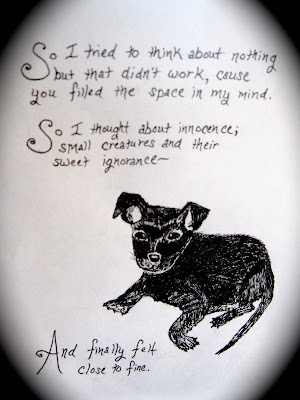 So I tried to think about nothing
but that didn't work, cause
you filled the space in my mind.
So I thought about innocence;
small creatures and their
sweet ignorance~
And finally felt
close to fine.